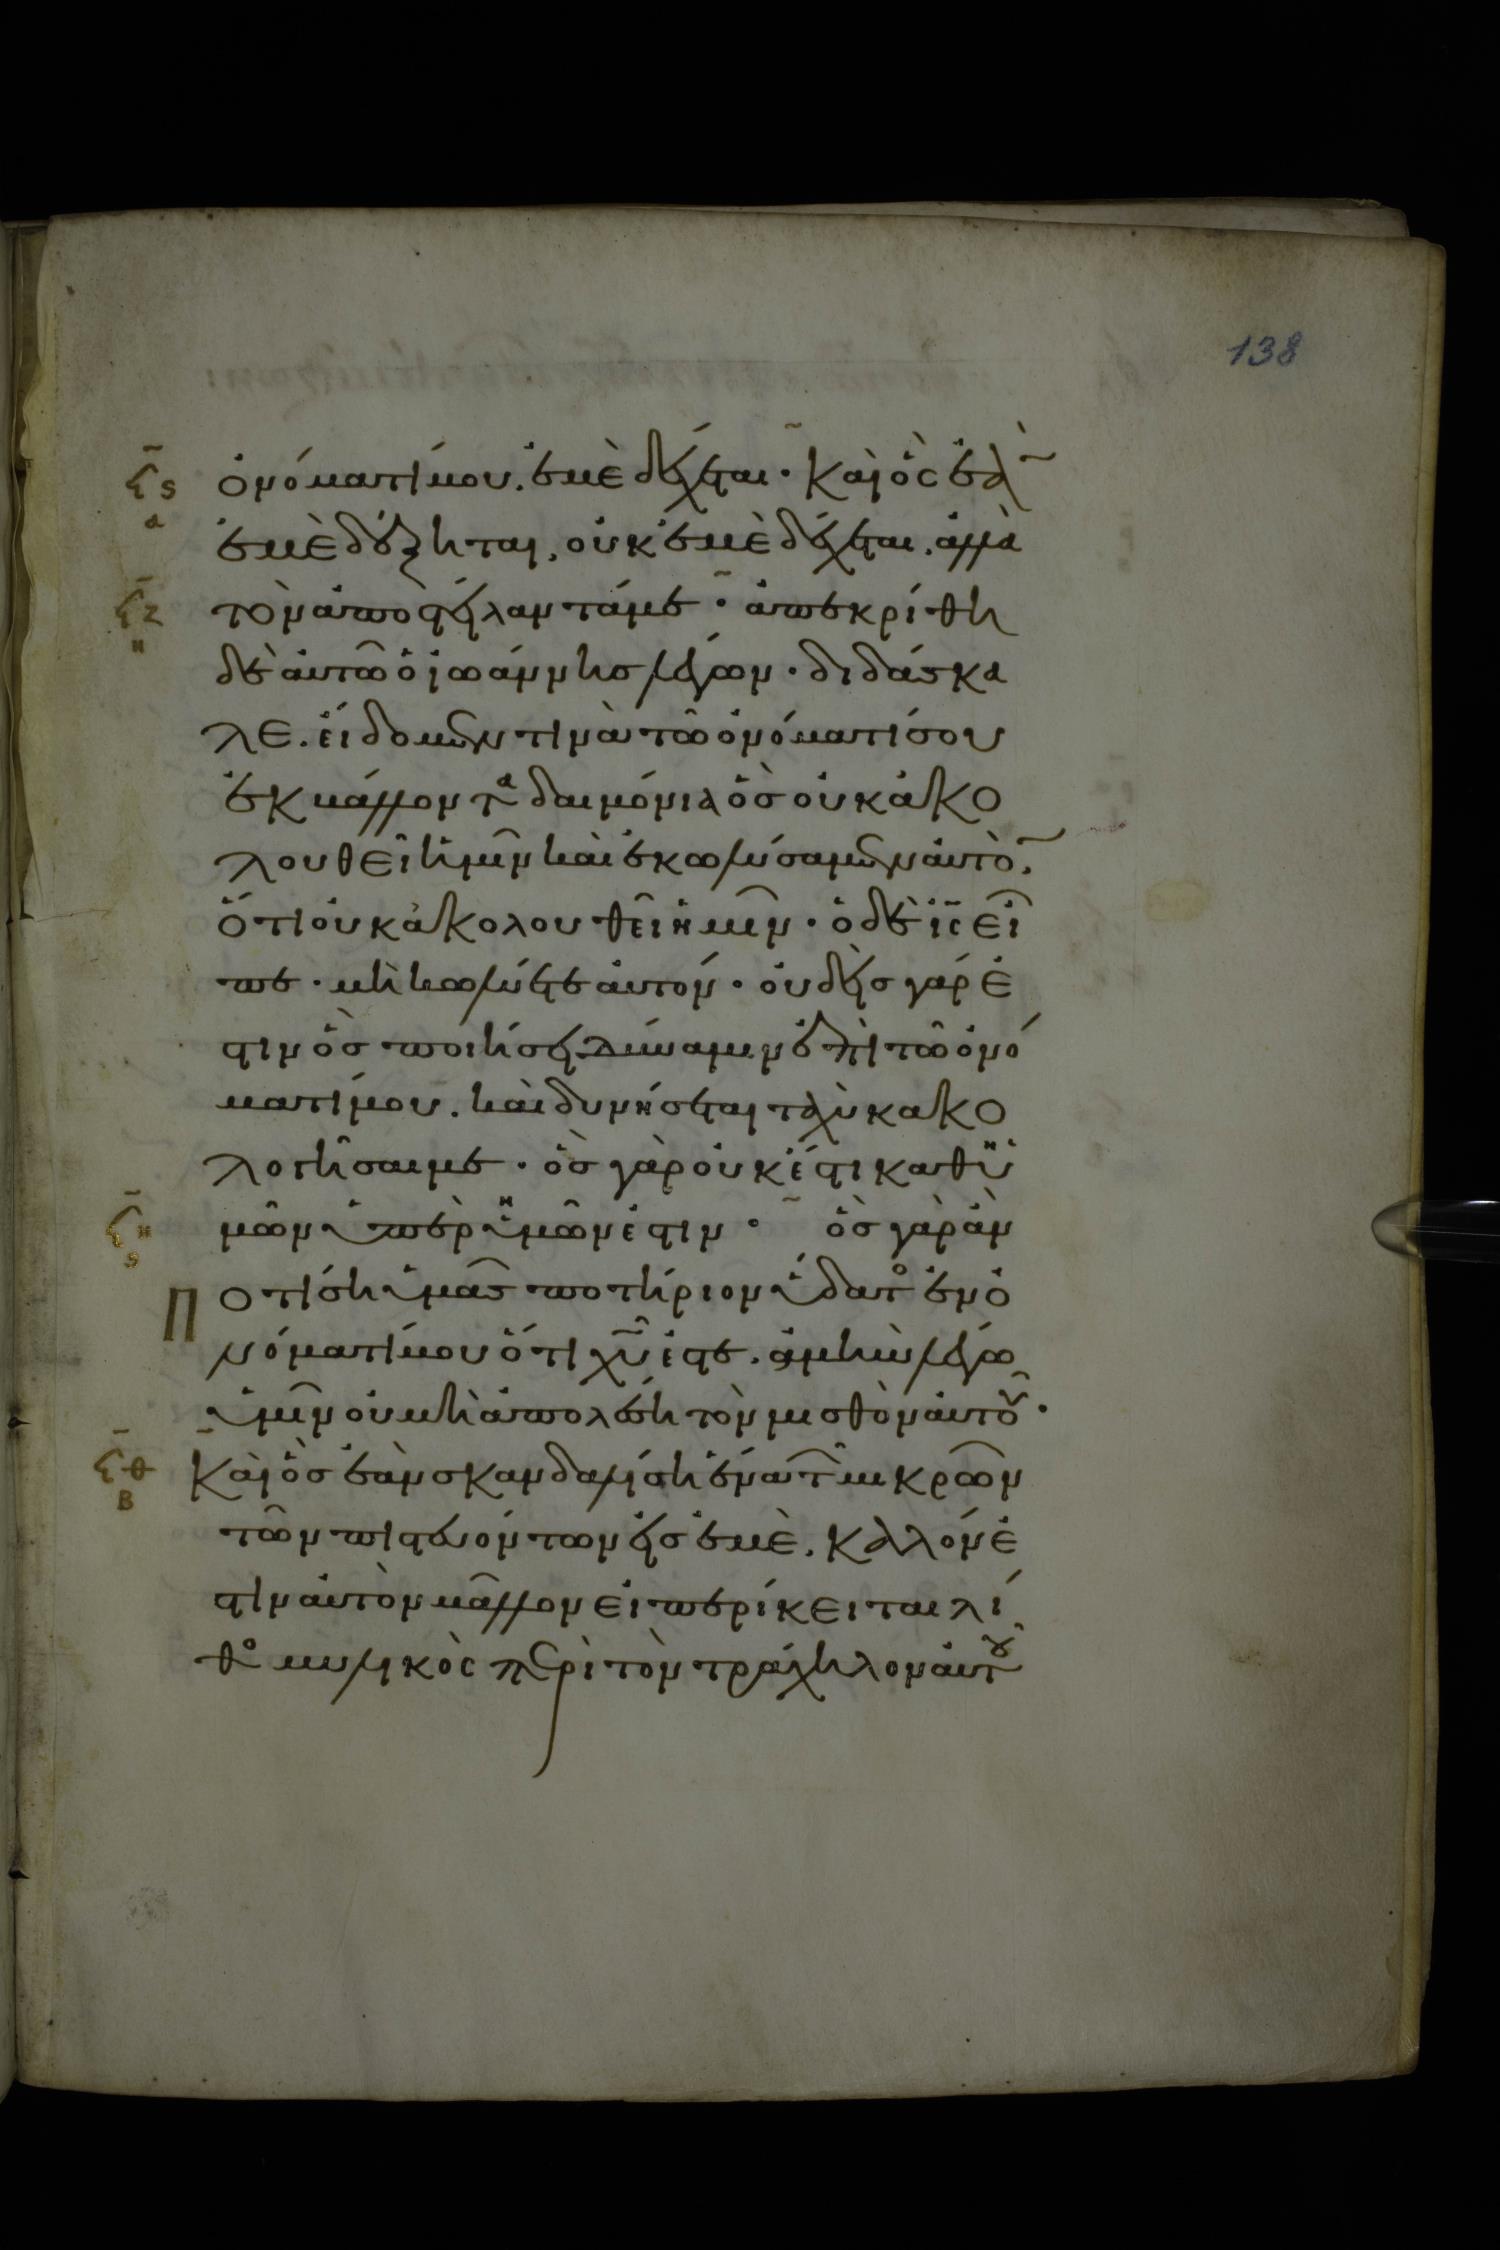 138
ϟϛ ὀνόματί μου. ἐμὲ δέχεται · Καὶ ὃς ἐὰ̄
α
ἐμὲ δέξηται, οὐκ ἐμὲ δέχεται. ἀλλὰ
ϟζ τὸν ἀποστείλαντά με · ἀπεκρίθη
η
δὲ αὐτῶ ὁ ἰωάννησ λέγων · διδάσκα
λε. εἴδομέν τινὰ τῶ ὀνόματί σου
ἐκβάλλοντα δαιμόνια ὃσ οὐκ ἀκο
λουθεῖ ἡμῖν καὶ ἐκωλύσαμεν αὐτὸ̄.
ὅτι οὐκ ἀκολουθεῖ ἡμῖν · ὁ δὲ ις̄ εἶ
πε · μὴ κωλύετε αὐτόν · οὐδεὶσ γάρ ἐ
στιν ὃσ ποιήσει δύναμιν ἐπὶ τῶ ὀνό
ματί μου. καὶ δυνήσεται ταχὺ κακο
λογῆσαι με · ὃσ γὰρ οὐκ ἔστι καθ ὑ
μῶν ὑπὲρ ὑμῶν ἐστιν · ὃσ γὰρ ἂν
ϟη
ϛ
Ποτίση ὑμᾶσ ποτήριον ὕδατος ἐν ὀ
νόματί μου ὅτι χῦ ἐστε. ἀμὴν λέγω
ὑμῖν οὐ μὴ ἀπολέση τὸν μισθὸν αὐτοῦ ·
ϟθ Καὶ ὃσ ἐὰν σκανδαλίση ἕνα τῶν μικρῶν
β
τῶν πιστευόντων εἰσ ἐμὲ. καλλόν ἐ
στιν αὐτὸν μᾶλλον εἰ περίκειται λί
θος μυλικὸς περὶ τὸν τράχηλον αὐτοῦ